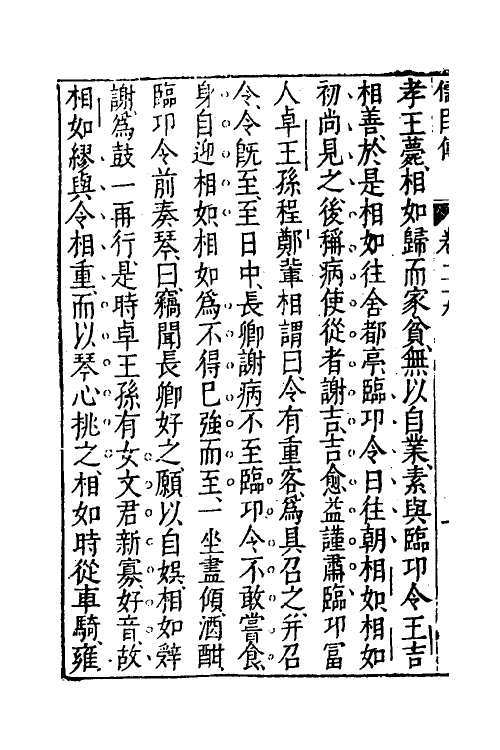 孝王薨、相如歸而家貧、無以自業、素與臨邛令王吉
相善、於是相如往舍都亭、臨邛令日往朝相如、相如
初尚見之、後稱病使從者謝吉、吉愈益謹肅、臨邛富
人卓王孫程鄭輩相謂曰、令有重客、為具召之、并召
令、令既至、至日中、長卿謝病不至、臨邛令不敢嘗食、
身自迎相如、相如為不得已強而至、一坐盡傾、酒酣、
臨邛令前奏琴、曰、竊聞長卿好之、願以自娛、相如辭
謝、為鼓一再行、是時卓王孫有女文君新寡、好音、故
相如繆與令相重、而以琴心挑之、相如時從車騎、雍